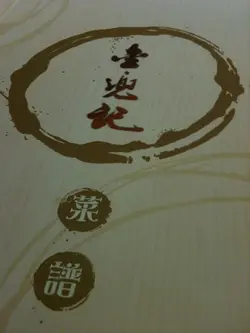 金兜記
菜
譜